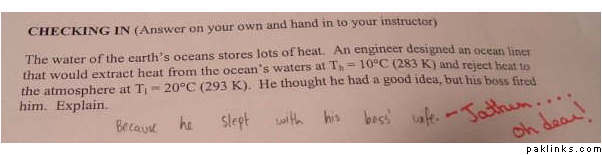 CHECKING IN (Answer on your own and hand in to your instructor)
The water of the earth's oceans stores lots of heat. An engineer designed an ocean liner
that would extract heat from the ocean's waters at Th = 10°C (283 K) and reject heat to
the atmosphere at Tl = 20°C (293 K). He thought he had a good idea, but his boss fired
him. Explain.
Because he slept with his boss' wife. - Jathun....
oh dear!
paklinks.com